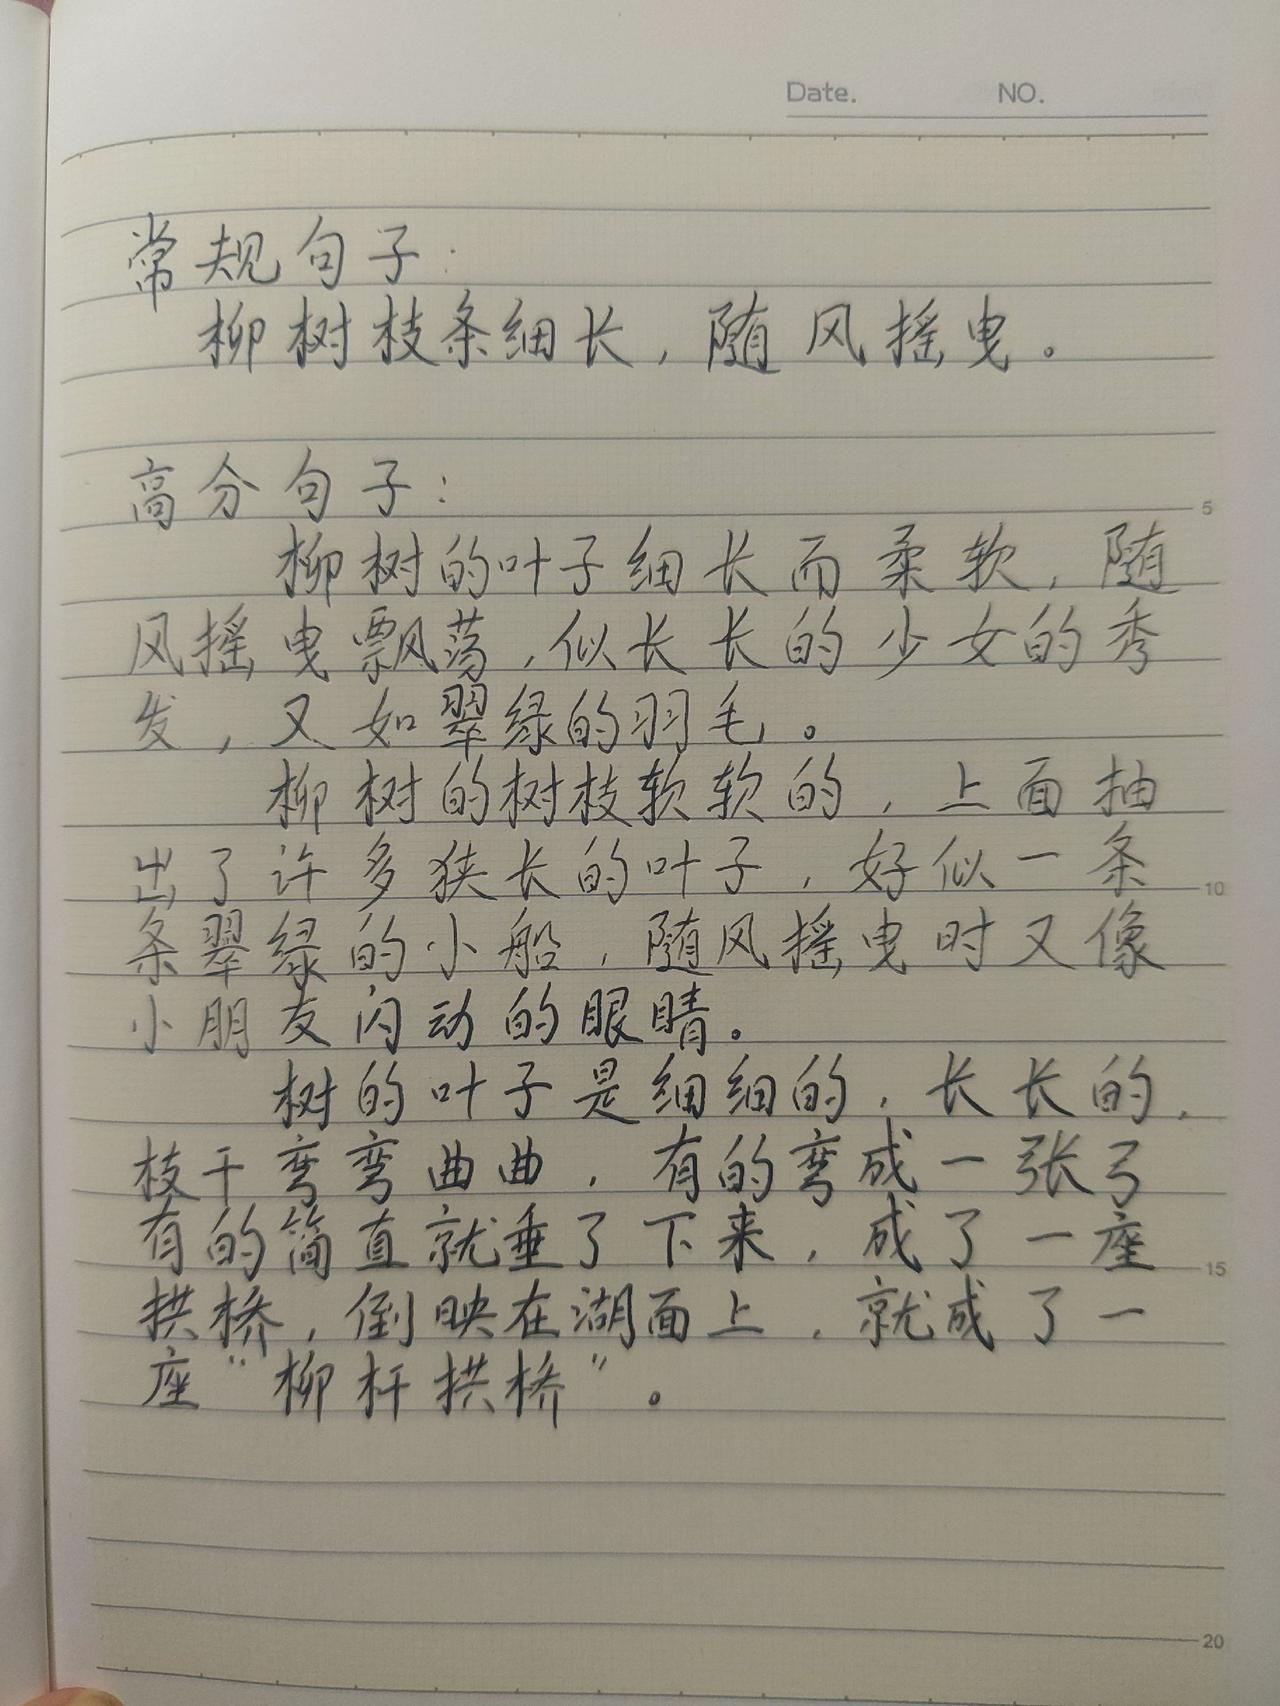 Date. NO.
常规句子:
柳树枝条细长,随风摇曳。
高分句子:
5
柳树的叶子细长而柔软,随
风摇曳飘荡,似长长的少女的秀
发,又如翠绿的羽毛。
柳树的树枝软软的,上面抽
出了许多狭长的叶子,好似一条
10
条翠绿的小船,随风摇曳时又像
小朋友闪动的眼睛。
树的叶子是细细的,长长的,
枝干弯弯曲曲,有的弯成一张弓
有的简直就垂了下来,成了一座
15
拱桥,倒映在湖面上,就成了一
座“柳杆拱桥”。
20